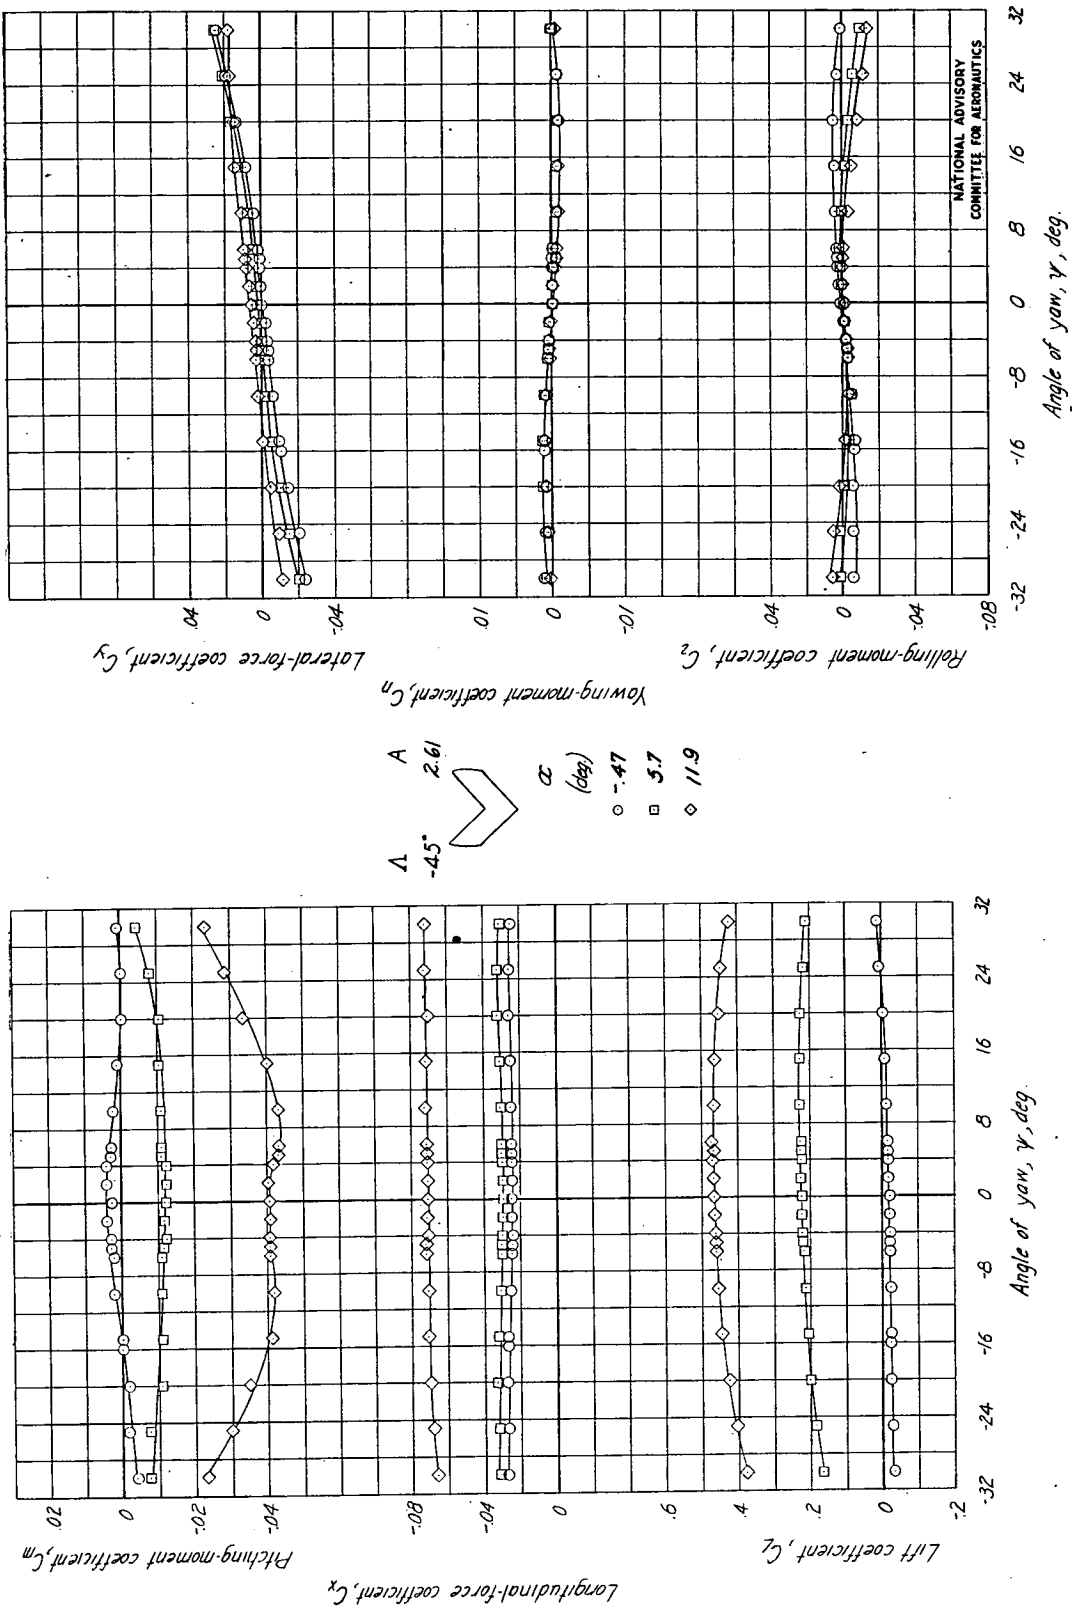 .02
0
-.02
-.04
Pitching-moment coefficient, Cm
-.08
-.04
0
Longitudinal-force coefficient, Cx
.6
.4
.2
0
-.2
Lift coefficient, CL
-32
-24
-16
-8
0
8
16
24
32
Angle of yaw, ψ, deg
Λ A
-45° 2.61
α
(deg.)
○ -.47
□ 5.7
◇ 11.9
.04
0
-.04
Lateral-force coefficient, Cy
.01
0
-.01
Yawing-moment coefficient, Cn
.04
0
-.04
-.08
Rolling-moment coefficient, Cl
-32
-24
-16
-8
0
8
16
24
32
Angle of yaw, ψ, deg.
NATIONAL ADVISORY
COMMITTEE FOR AERONAUTICS